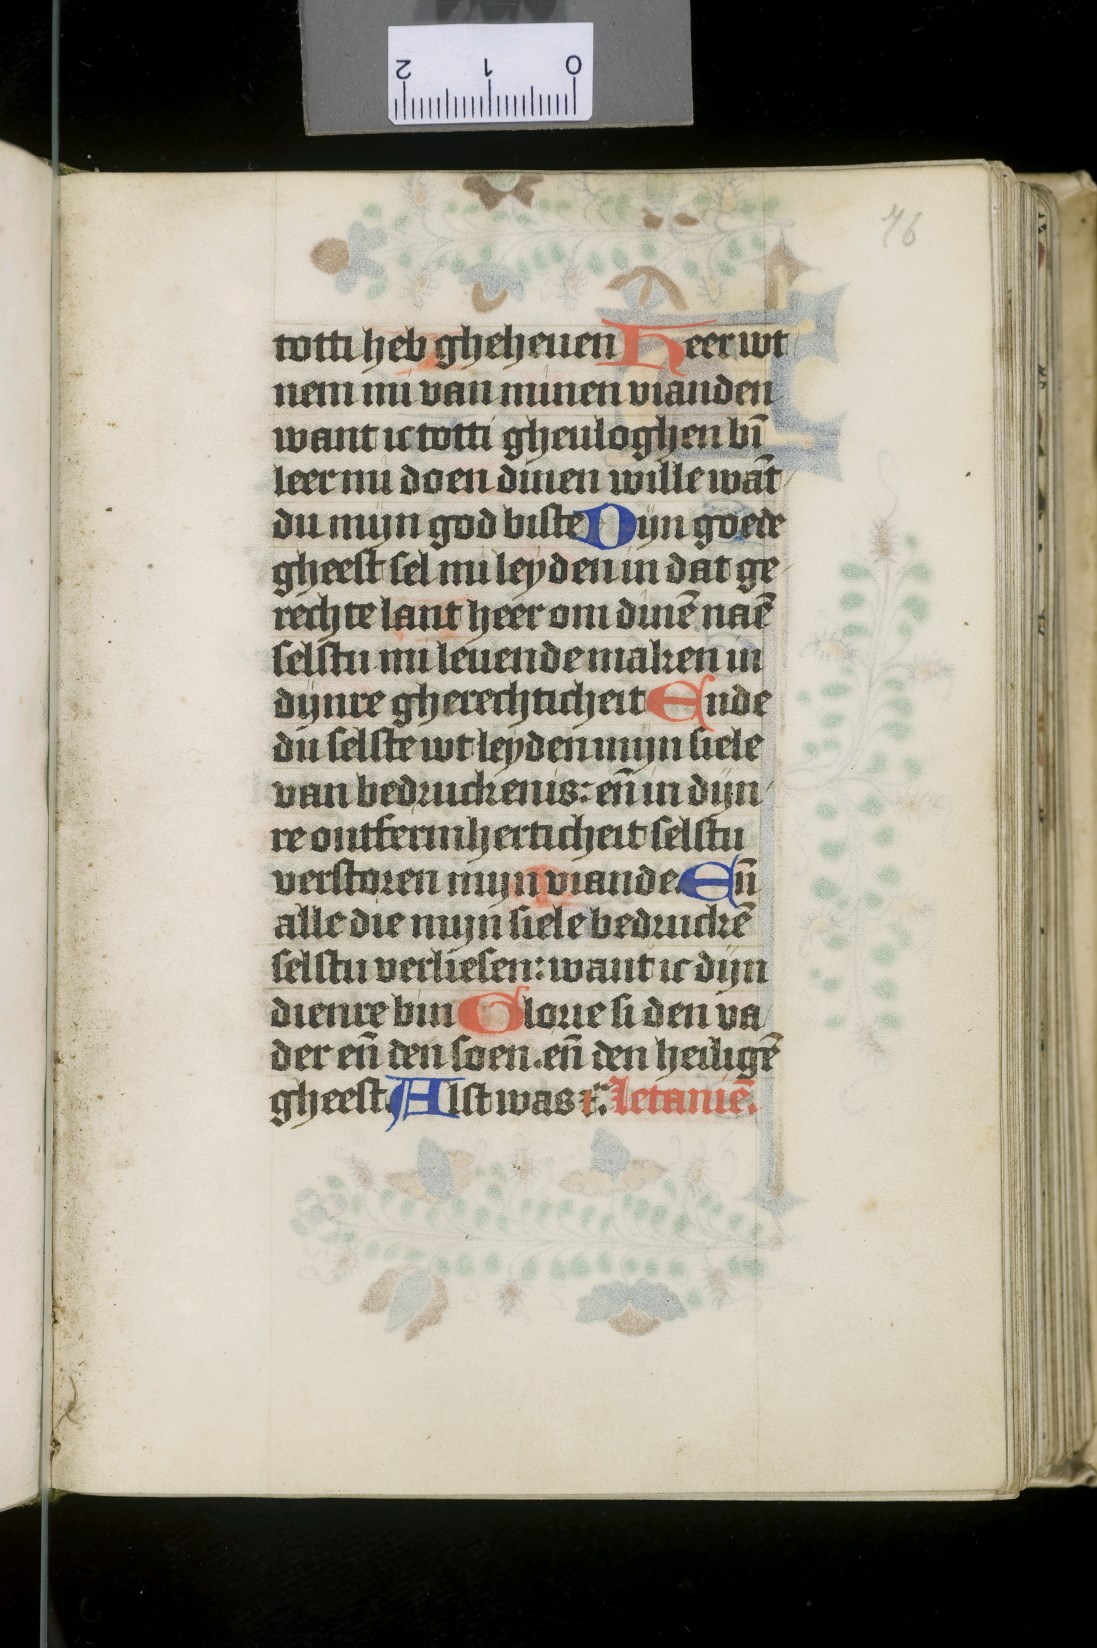 76
totti heb gheheuen Heer wt
nem mi van minen vianden
want ic totti gheuloghen bī
leer mi doen dinen wille wāt
du mijn god biste Dijn goede
gheest sel mi leyden in dat ge
rechte lant heer om dinē naē
selstu mi leuende maken in
dijnre gherechticheit Ende
du selste wt leyden mijn siele
van bedruckenis: eñ in dijn
re ontfermherticheit selstu
verstoren mijn viande. Eñ
alle die mijn siele bedruckē
selstu verliesen: want ic dijn
dienre bin Glorie si den va
der eñ den soen. eñ den heiligē
gheest. Alst was ⁊c̄. letaniē.
2 1 0